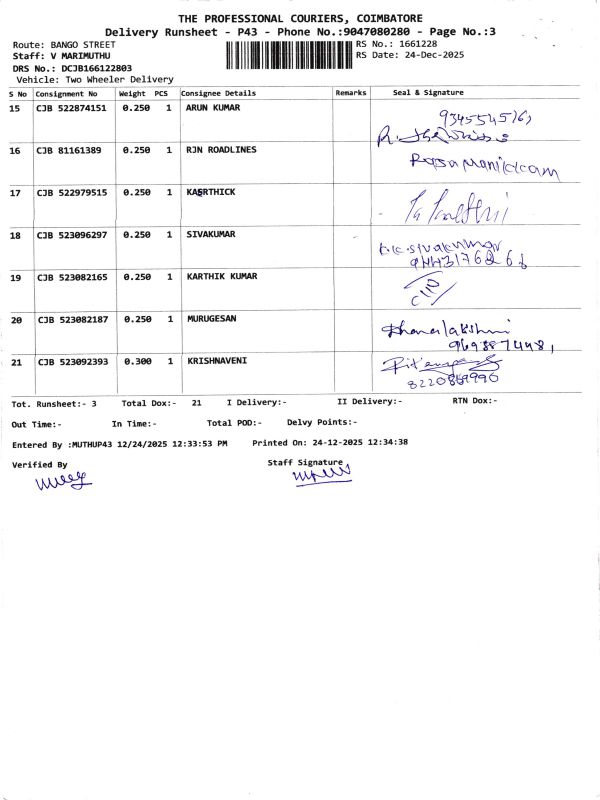 THE PROFESSIONAL COURIERS, COIMBATORE
Delivery Runsheet - P43 - Phone No.:9047080280 - Page No.:3
Route: BANGO STREET RS No.: 1661228
Staff: V MARIMUTHU RS Date: 24-Dec-2025
DRS No.: DCJB166122803
Vehicle: Two Wheeler Delivery
S No Consignment No Weight PCS Consignee Details Remarks Seal & Signature
15 CJB 522874151 0.250 1 ARUN KUMAR
16 CJB 81161389 0.250 1 RJN ROADLINES
17 CJB 522979515 0.250 1 KAERTHICK
18 CJB 523096297 0.250 1 SIVAKUMAR
K.K.Sivakumar
19 CJB 523082165 0.250 1 KARTHIK KUMAR
20 CJB 523082187 0.250 1 MURUGESAN
Dhanalakshmi
21 CJB 523092393 0.300 1 KRISHNAVENI
Tot. Runsheet:- 3 Total Dox:- 21 I Delivery:- II Delivery:- RTN Dox:-
Out Time:- In Time:- Total POD:- Delvy Points:-
Entered By :MUTHUP43 12/24/2025 12:33:53 PM Printed On: 24-12-2025 12:34:38
Verified By Staff Signature